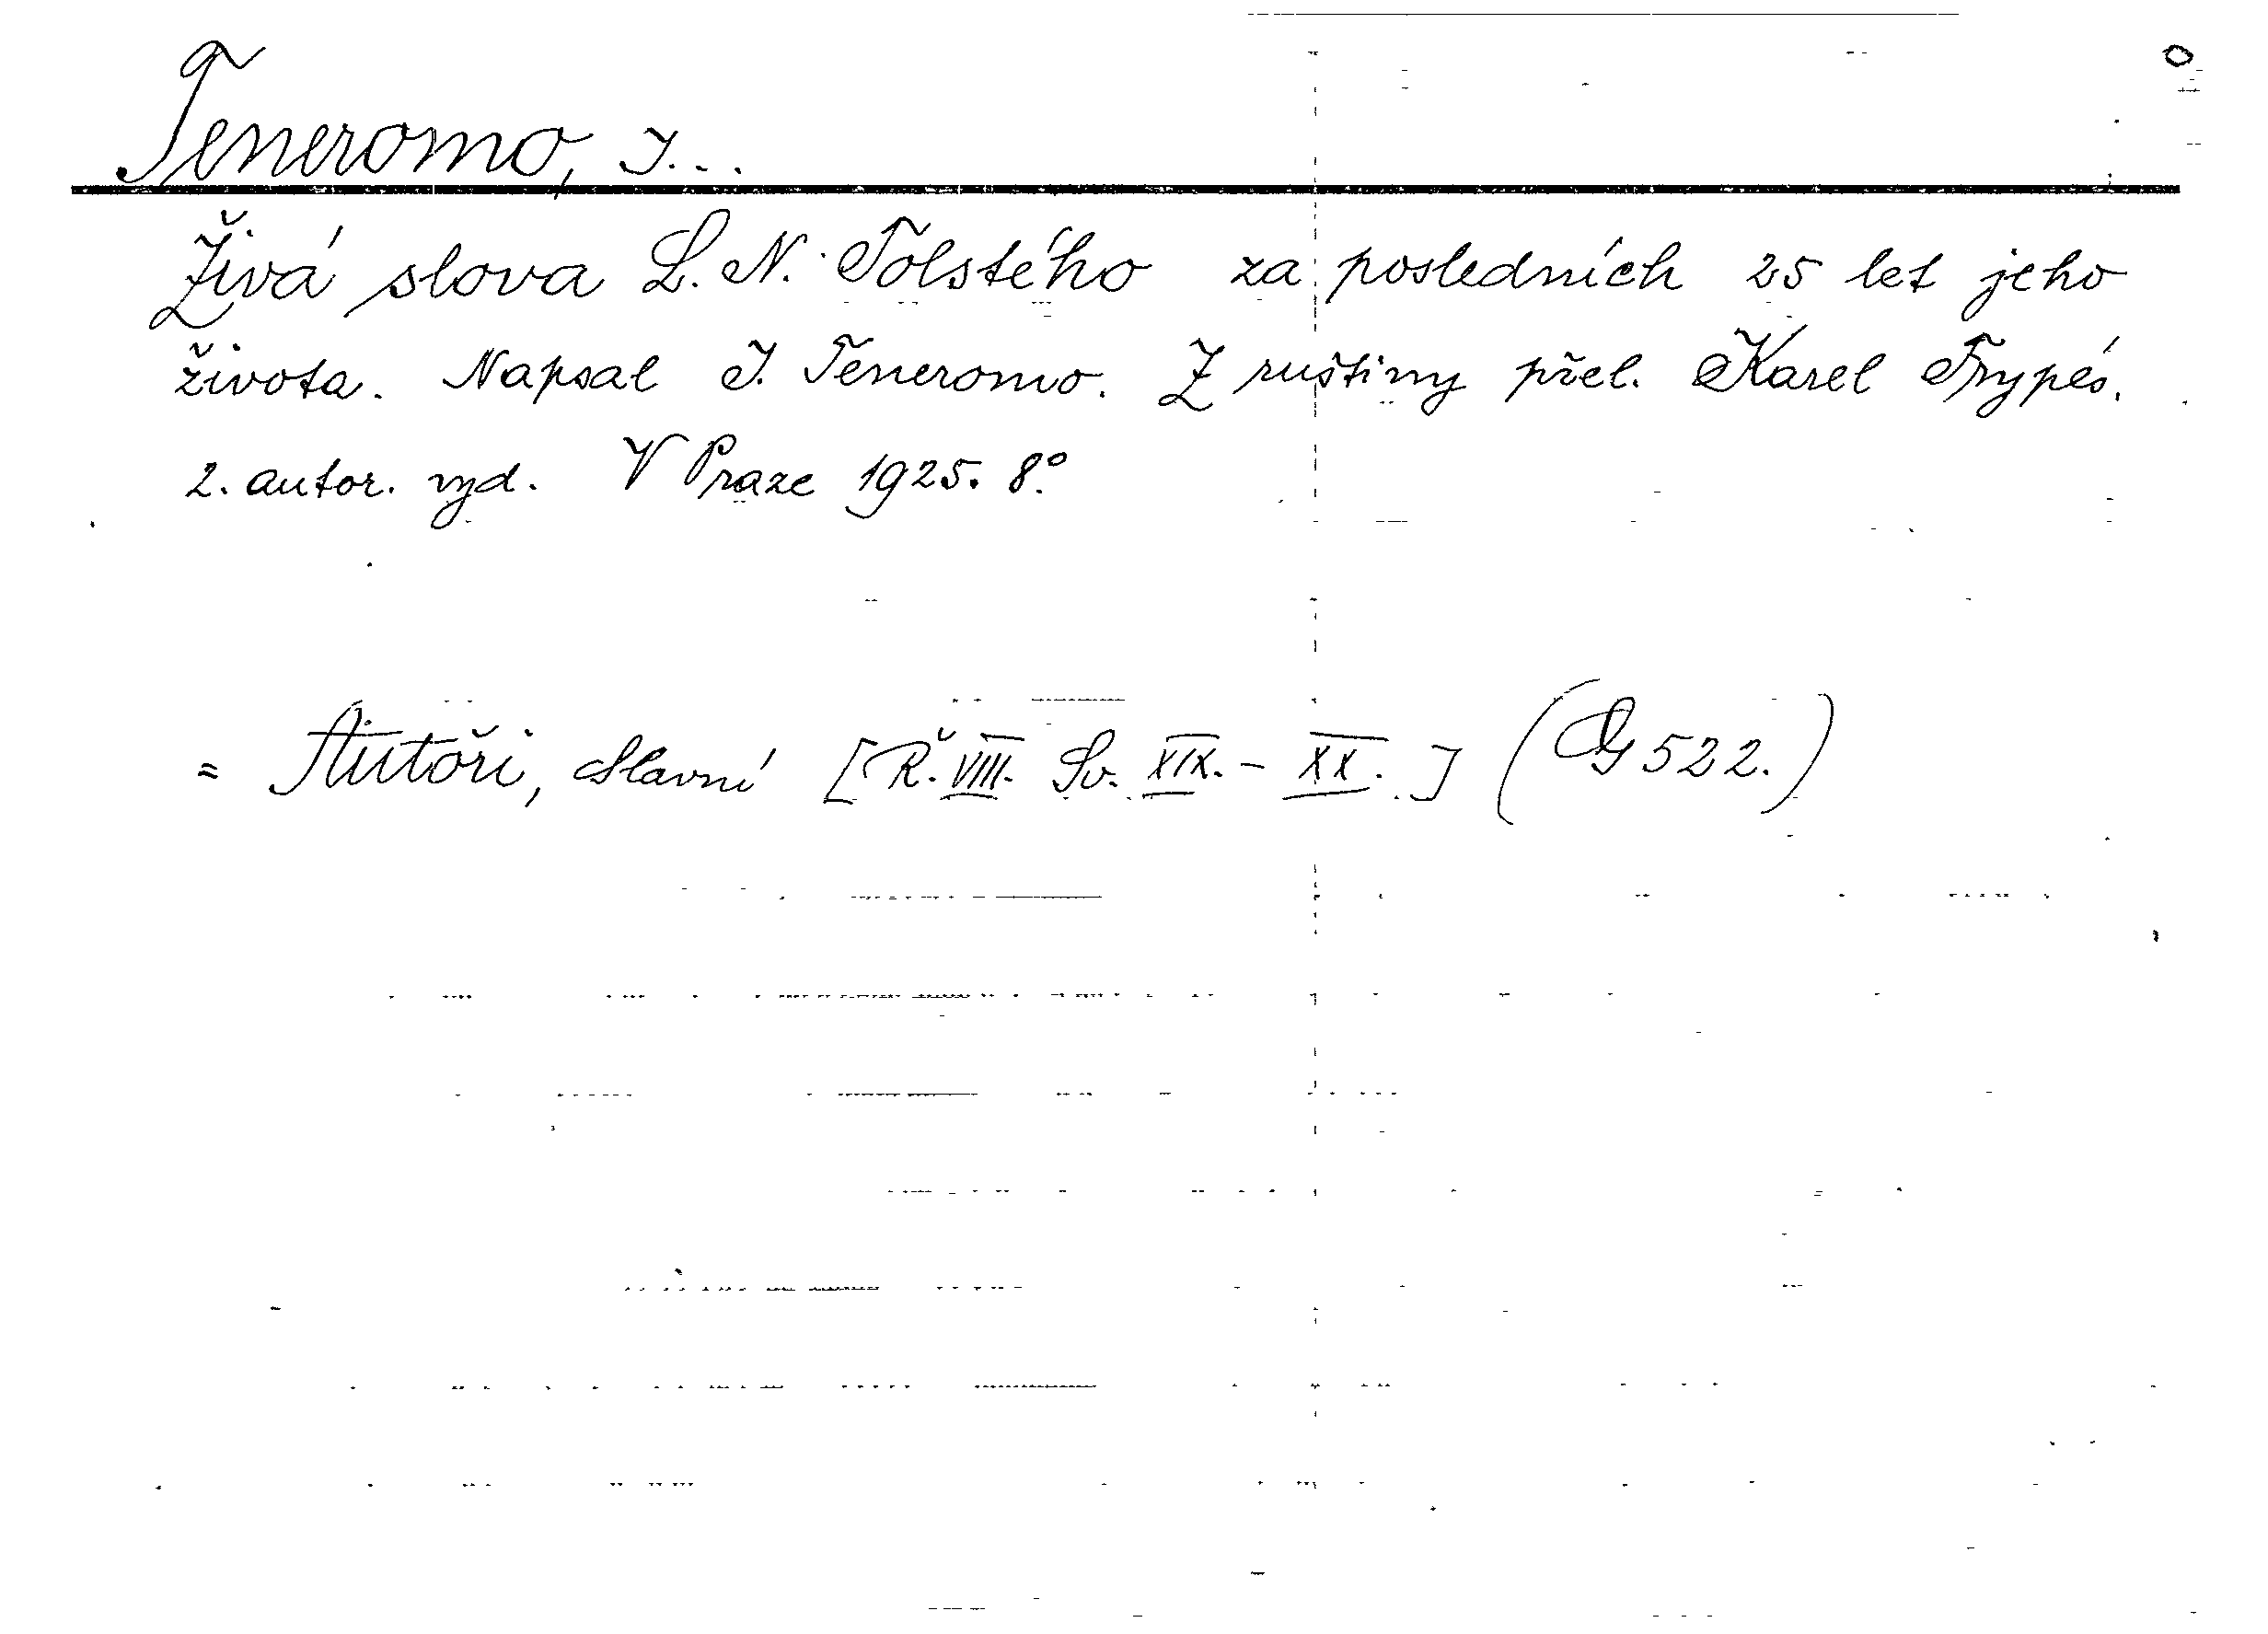 Teneromo, I...
Živá slova L. N. Tolstého za posledních 25 let jeho
života. Napsal I. Teneromo. Z ruštiny přel. Karel Trypés.
2. autor. vyd. V Praze 1925. 8°.
= Autoři, slavní [Ř. VIII. Sv. XIX. - XX.] (G 522.)